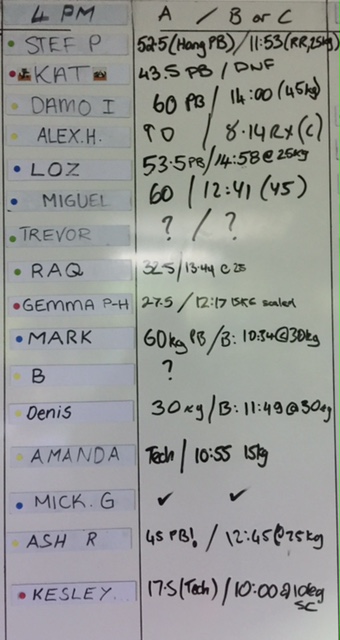 4 PM A / B or C
STEF P 52.5(Hang PB)/11:53(RR,25kg)
KAT 43.5 PB / DNF
DAMO I 60 PB/ 14:00(45kg)
ALEX.H. / 8.14 RX(C)
LOZ 53.5PB/14:58@25kg
MIGUEL 60 / 12:41 (45)
TREVOR ? / ?
RAQ 32.5/13:44 @ 25
GEMMA P-H 27.5 / 12:17 15KG scaled
MARK 60kg PB / B: 10:34@30kg
B ?
Denis 30kg / B: 11:49@30kg
AMANDA Tech / 10:55 15kg
MICK. G ✓ ✓
ASH R 45 PB! / 12:45@25kg
KESLEY... 17.5(Tech) / 10:00@10kg
SC